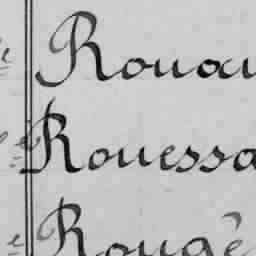 Rouau
Rouessa
Rougè